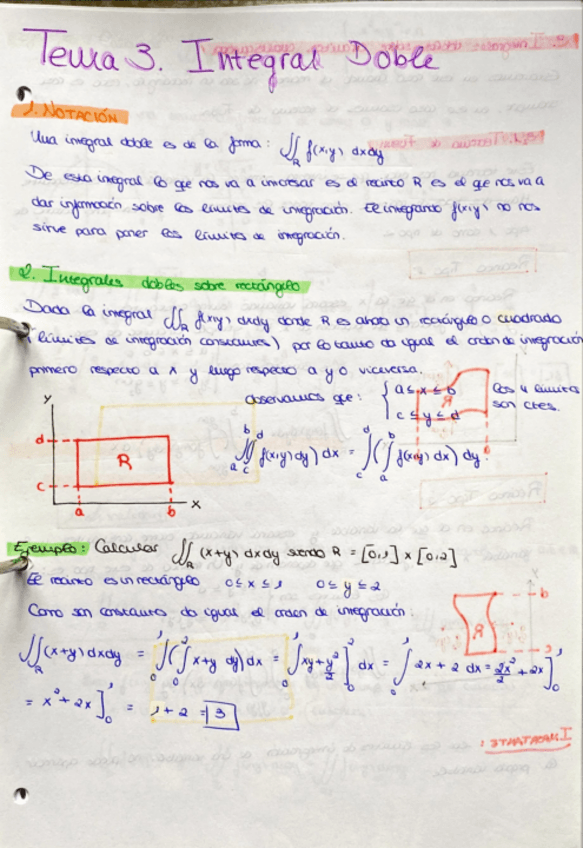 Tema 3. Integral Doble
1. NOTACIÓN
Una integral doble es de la forma: ∬_R f(x,y) dxdy
De esta integral lo que nos va a interesar es el recinto R es el que nos va a
dar información sobre los límites de integración. El integrando f(x,y) no nos
sirve para poner los límites de integración.
2. Integrales dobles sobre rectángulo
Dada la integral ∬_R f(x,y) dxdy donde R es ahora un rectángulo o cuadrado
(límites de integración constantes) por lo tanto da igual el orden de integración
primero respecto a x y luego respecto a y o viceversa.
Observamos que: { a ≤ x ≤ b
c ≤ y ≤ d
los 4 límites
son ctes.
y
d
R
c
a b x
∫_a^b (∫_c^d f(x,y) dy) dx = ∫_c^d (∫_a^b f(x,y) dx) dy
Ejemplo: Calcular ∬_R (x+y) dxdy siendo R = [0,1] x [0,2]
El recinto es un rectángulo 0 ≤ x ≤ 1 0 ≤ y ≤ 2
Como son constantes da igual el orden de integración:
∬_R (x+y) dxdy = ∫_0^1 (∫_0^2 x+y dy) dx = ∫_0^1 xy + y²/2 ]_0^2 dx = ∫_0^1 2x + 2 dx = 2x²/2 + 2x ]_0^1
= x² + 2x ]_0^1 = 1 + 2 = 3